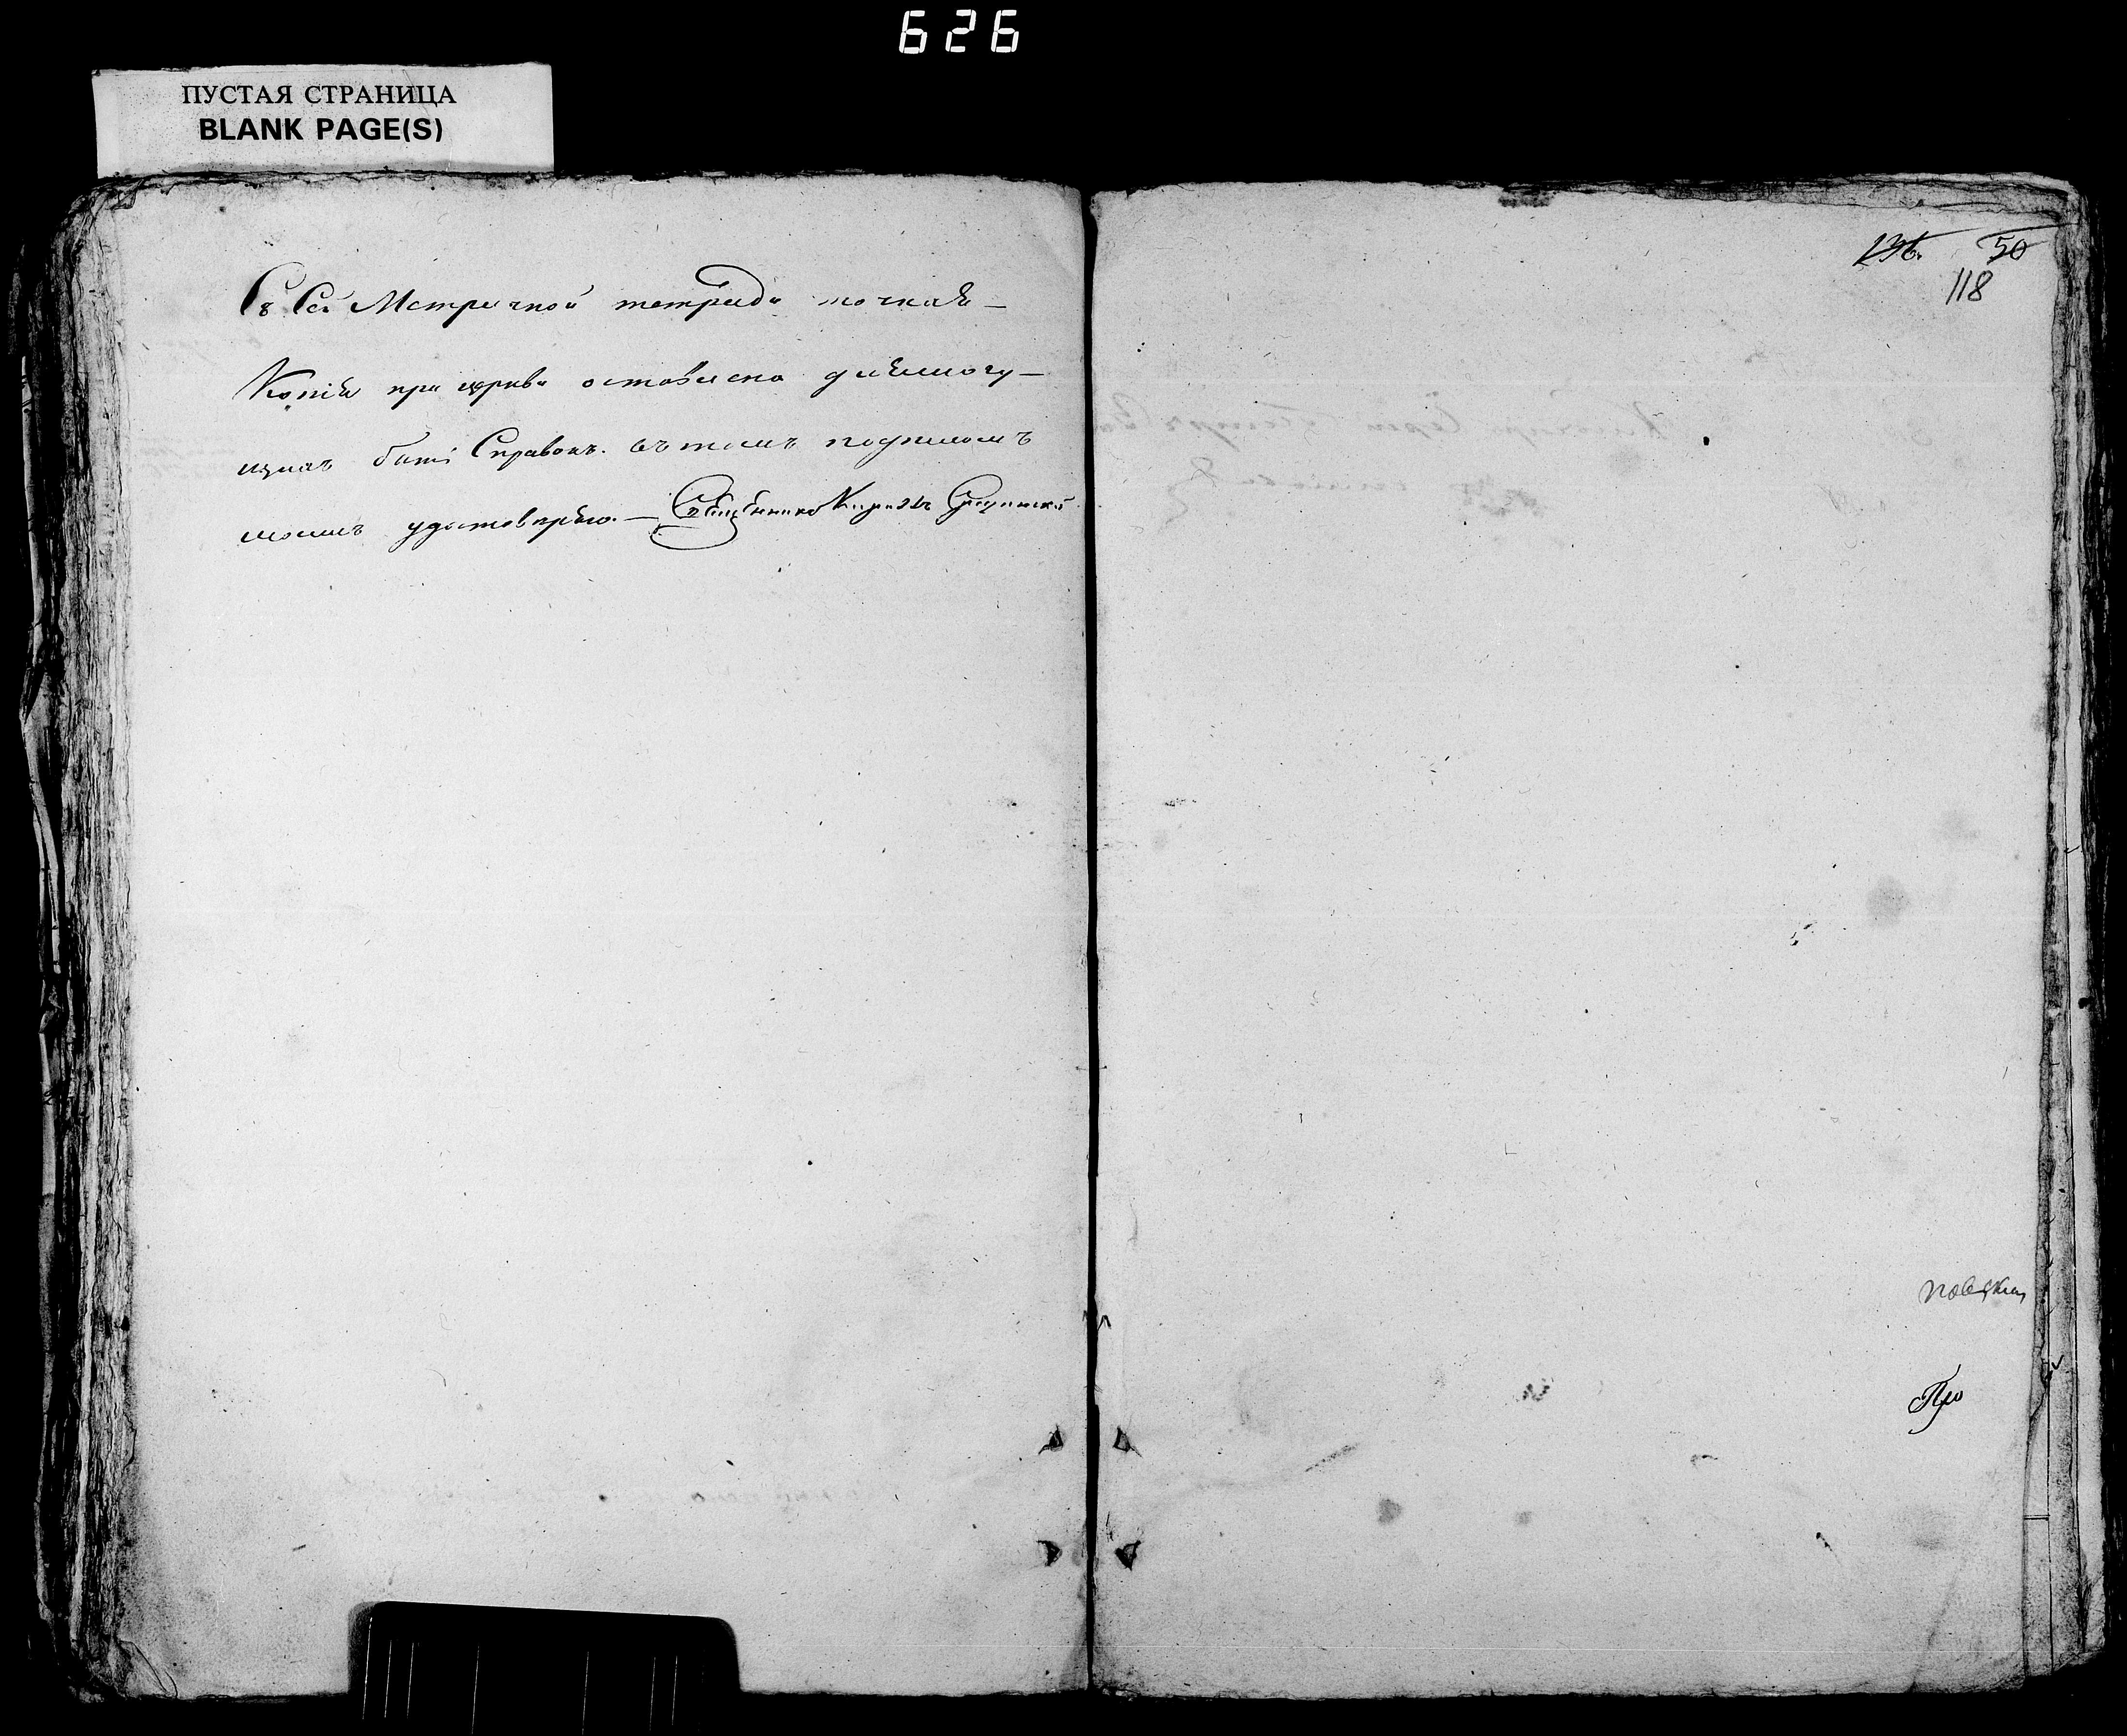 626
ПУСТАЯ СТРАНИЦА
BLANK PAGE(S)
Съ Сей Метричной тетради точная
Копія при церкви оставлена для могу
щихъ быть Справокъ. въ томъ подписомъ
моимъ удостоверяю. — Священникъ Кириллъ
136. 50
118
Про